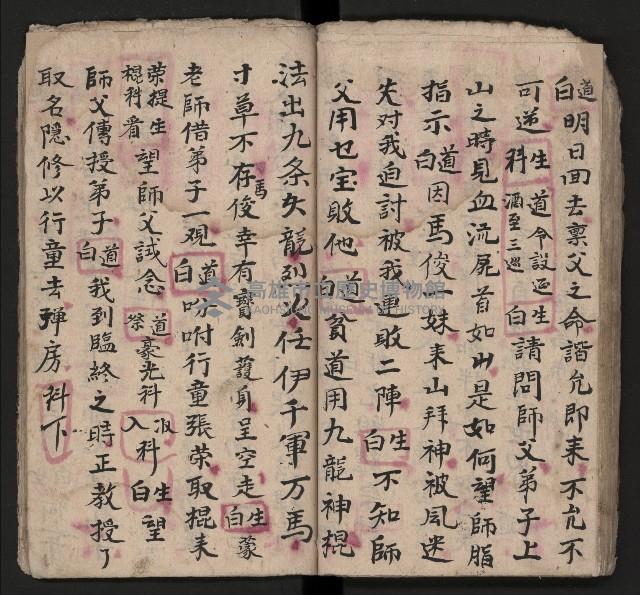 道白明日回去禀父之命諧允即来不允不
可逆生科道命設延酒至三巡生白請問師父弟子上
山之時見血流屍首如山是如何望師脂
指示道白因馬俊一妹来山拜神被風迷
失对我追討被我連敗二陣生白不知師
父用乜宝敗他道白貧道用九龍神棍
法出九条火龍列汝任伊千軍万馬
寸草不存馬俊幸有寶劍護身呈空走生白蒙
老師借弟子一观道白吩咐行童張荣取棍来
荣提棍科生看望師父試念道祭豪光科收入科生白望
師父傳授弟子道白我到臨終之時正教授了
取名隐修以行童去禅房科下
高雄市立歷史博物館
KAOHSIUNG MUSEUM OF HISTORY